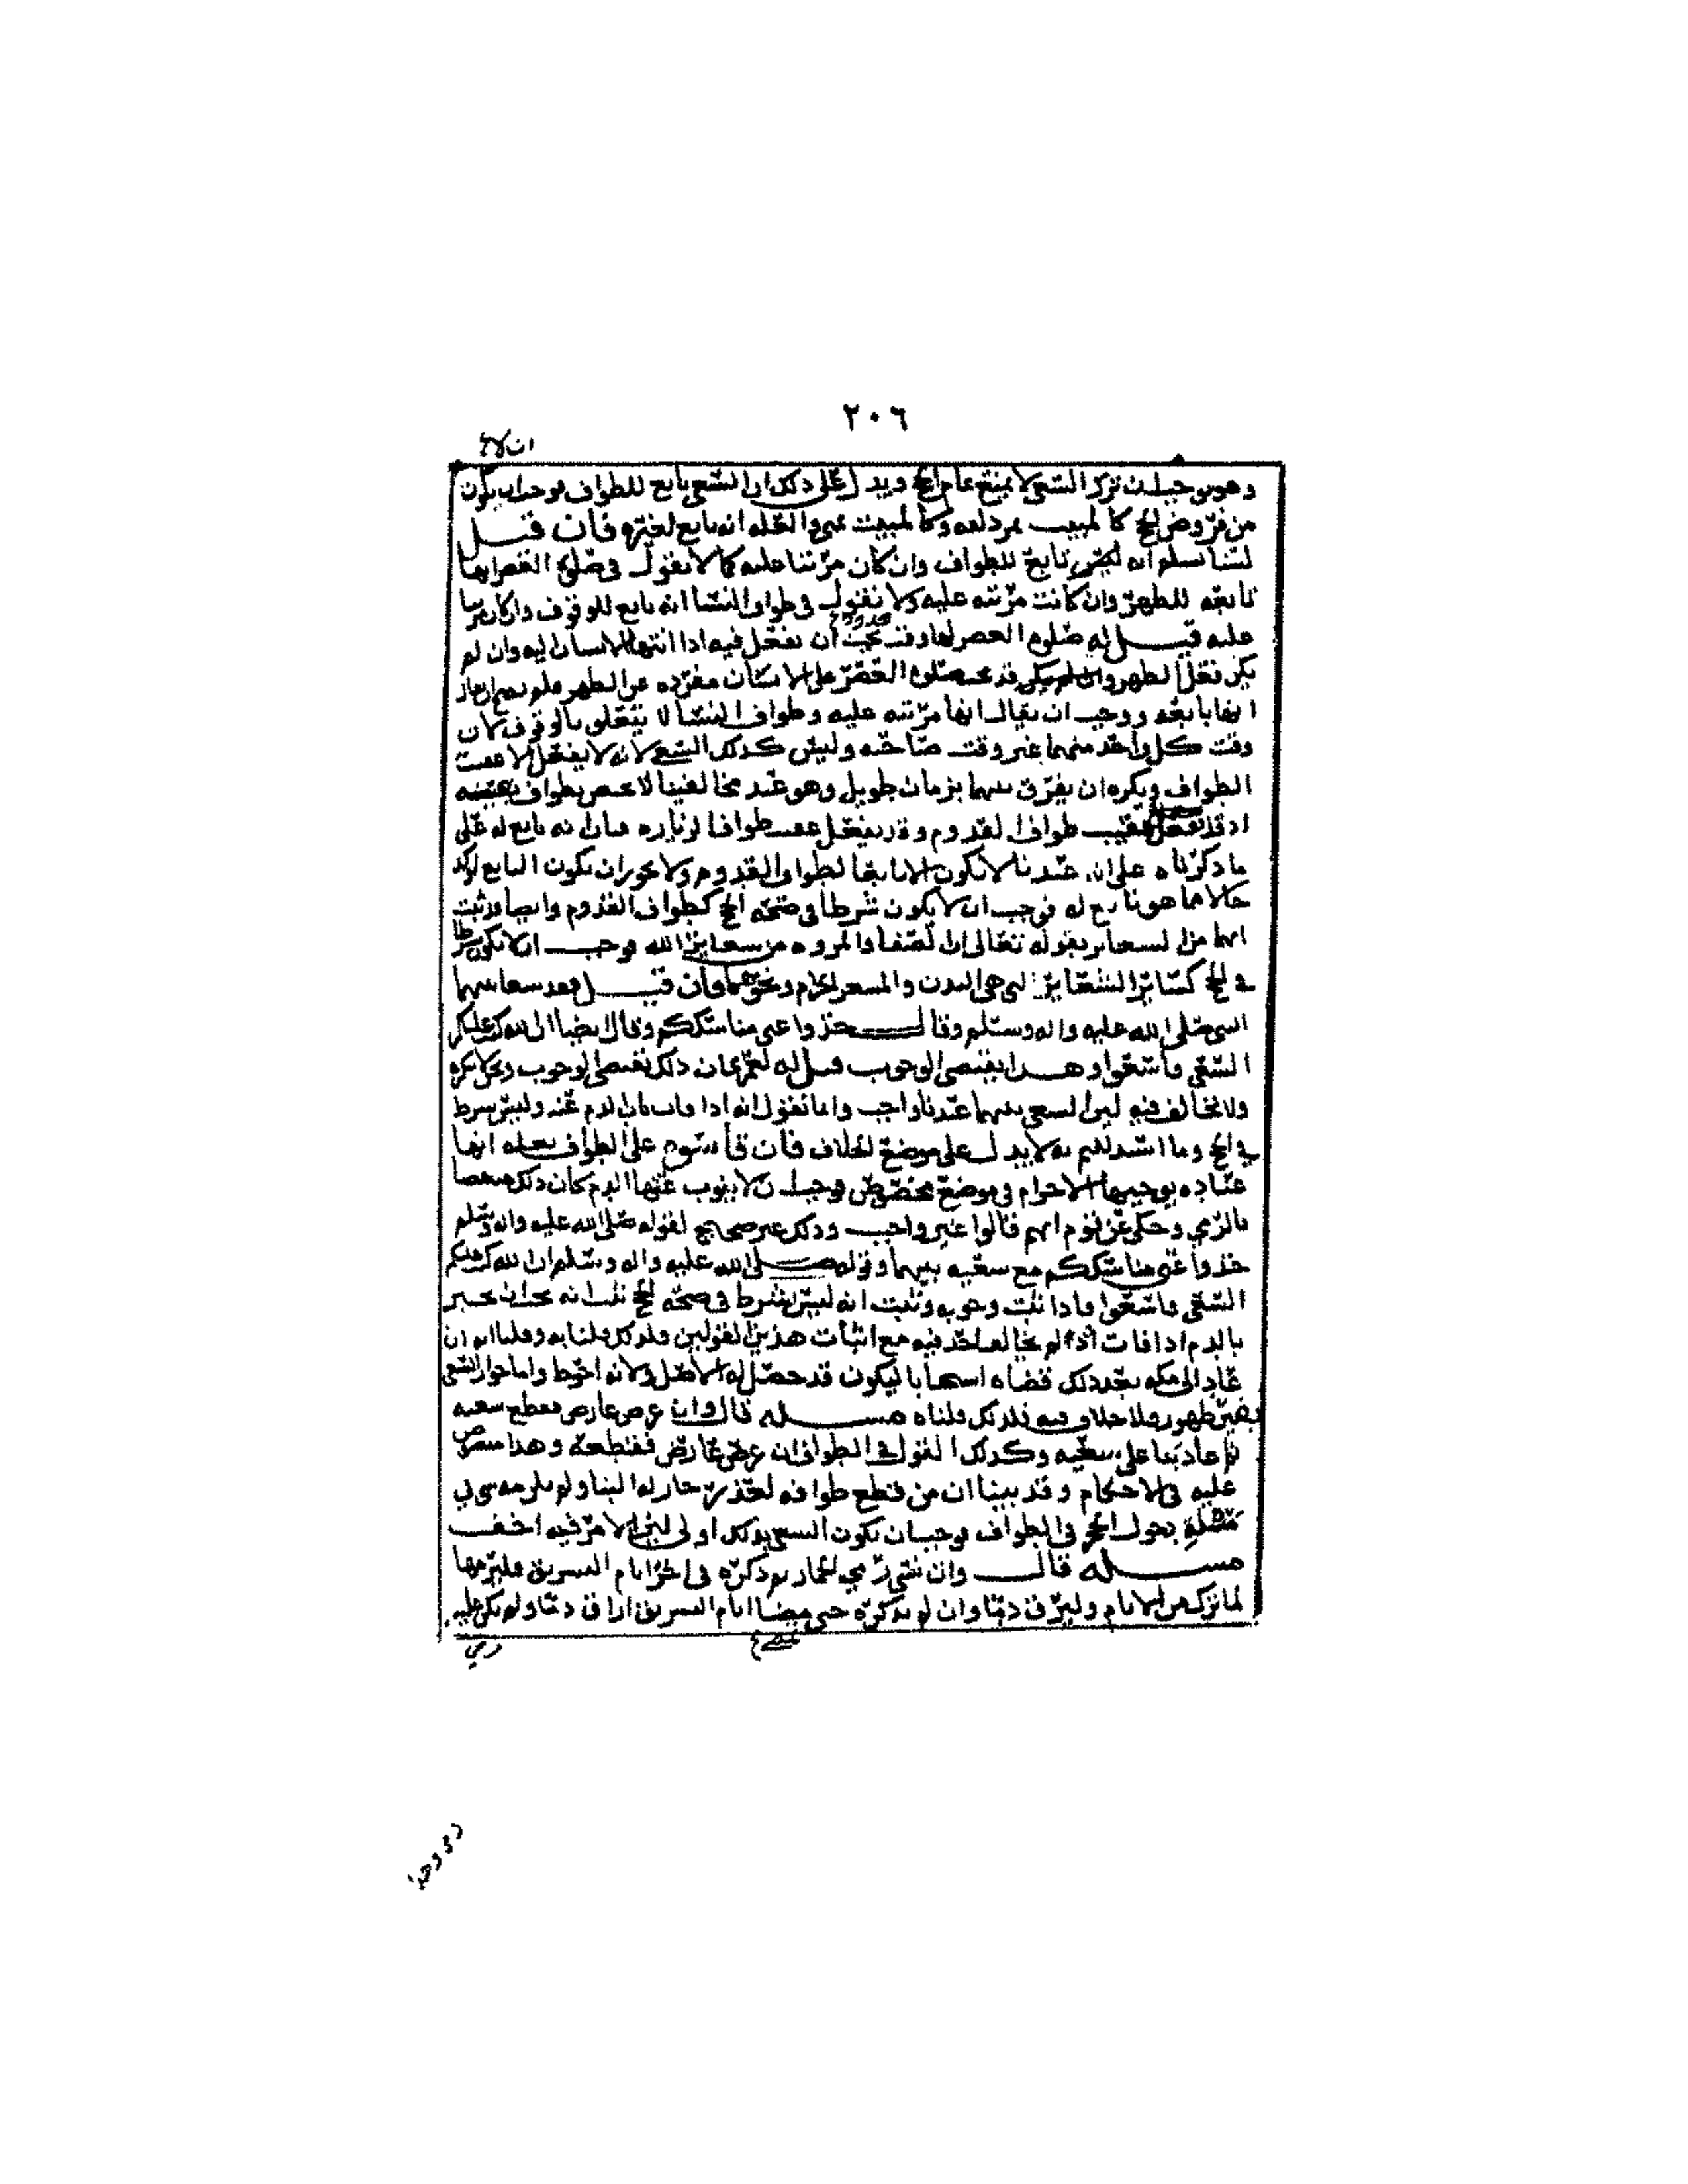 ٢٠٦
ان لا
وهو يوجب ان ترك السعي لا يمنع تمام الحج ويدل على ذلك ان السعي تابع للطواف فوجب ان يكون
من فروض الحج كالمبيت بمزدلفه وكالمبيت بمنى والعله انه تابع لغيره فان قيل
لسنا نسلم انه تابع للطواف وان كان مرتبا عليه كما لا نقول في صلوة العصر انها
تابعه للظهر وان كانت مرتبه عليه ولا نقول في طواف النسا انه تابع للوقوف وان كان مرتبا
عليه قيل له صلوة العصر لها وقت يجب ان تفعل فيه اذا انتها الانسان اليه وان لم
يكن فعل الظهر وقد تجب صلوة العصر على الانسان مفرده عن الظهر فلم يصح ان يقال
انها تابعه ووجب ان يقال انها مرتبه عليه وطواف النسا لا يتعلق بالوقوف لان
وقت كل واحد منهما غير وقت صاحبه وليس كذلك السعي لانه لا يفعل الا عقيب
الطواف ويكره ان يفرق بينهما بزمان طويل وهو عند مخالفينا لا يختص بطواف بعينه
اذ قد يفعل عقيب طواف القدوم وقد يفعل عقيب طواف الزياره فبان انه تابع له على
ما ذكرناه على انه عندنا لا يكون الا تابعا لطواف القدوم ولا يجوز ان يكون التابع اوكد
حالا مما هو تابع له فوجب ان لا يكون شرطا في صحه الحج كطواف القدوم وايضا قد ثبت
انهما من الشعائر بقوله تعالى ان الصفا والمروه من شعائر الله فوجب ان لا يكون شرطا
في الحج كسائر الشعائر التي هي البدن والمشعر الحرام ونحوهما فان قيل فقد سعا بينهما
النبي صلى الله عليه واله وسلم وقال خذوا عني مناسككم وقال ايضا ان الله كتب عليكم
السعي فاسعوا وهذا يقتضي الوجوب قيل له لعمري ان ذلك يقتضي الوجوب ونحن لا ننكره
ولا نخالف فيه لان السعي بينهما عندنا واجب وانما نقول انه اذا فات ناب الدم عنه وليس بشرط
في الحج وما استدللتم به لا يدل على موضع الخلاف فان قاسوه على الطواف بعله انها
عباده يوجبها الاحرام في موضع مخصوص فوجب ان لا ينوب عنها الدم كان ذلك منتقضا
بالرمي وحكي عن قوم انهم قالوا غير واجب وذلك غير صحيح لقوله صلى الله عليه واله وسلم
خذوا عني مناسككم مع سعيه بينهما وقوله صلى الله عليه واله وسلم ان الله كتب عليكم
السعي فاسعوا فاذا ثبت وجوبه وثبت انه ليس بشرط في صحه الحج قلنا انه يجب ان يجبر
بالدم اذا فات اذ لم يخالف احد فيه مع اثبات هذين القولين فلذلك قلنا به وقلنا انه ان
عاد الى مكه بعد ذلك قضاه استحبابا ليكون قد حصل له الاصل ولانه احوط واما جواز السعي
بغير طهور فلا خلاف فيه فلذلك قلناه مسله قال وان عرض عارض فقطع سعيه
ثم عاد بنا على سعيه وكذلك القول في الطواف ان عرض عارض فقطعه وهذا منصوص
عليه في الاحكام وقد بينا ان من قطع طوافه لعذر جاز له البنا
مسئلة دخول الحجر في الطواف فوجب ان يكون السعي بذلك اولى لان الامر فيه اخف
مسله قال وان نسي رمي الجمار ثم ذكره في اخر ايام التشريق فليرمها
لما ترك من الايام وليرق دما وان لم يذكره حتى مضا ايام التشريق اراق دما ولم يكن عليه
رمي